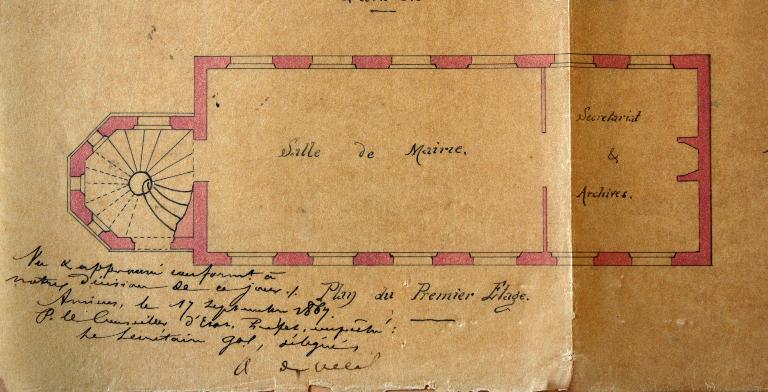 Salle de Mairie.
Secretariat
&
Archives.
Plan du Premier Étage.
Vu & approuvé conformt à
notre décision de ce jour.
Amiens, le 17 Septembre 1867.
P. le Conseiller d'Etat, Préfet, empêché:
Le Secrétaire gal, délégué,